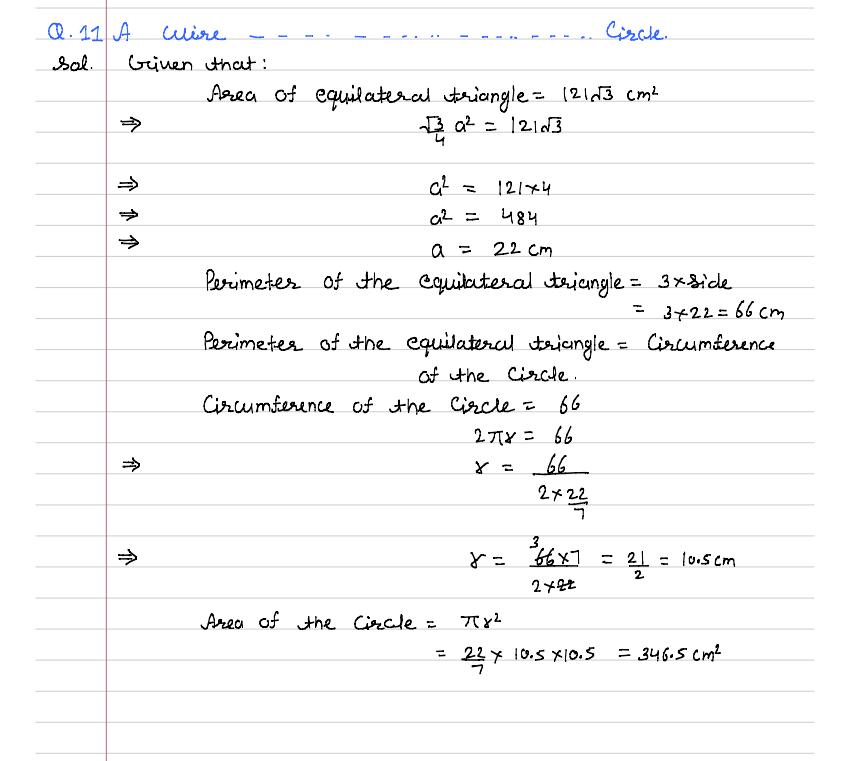 Q.11 A Wire - - - - - - - - .. - - - .. - - - - - .. Circle.
Sol. Given that :
Area of equilateral triangle = 121√3 cm²
⇒ √3/4 a² = 121√3
⇒ a² = 121×4
⇒ a² = 484
⇒ a = 22 cm
Perimeter of the equilateral triangle = 3×side
= 3×22 = 66 cm
Perimeter of the equilateral triangle = Circumference
of the Circle.
Circumference of the Circle = 66
2πr = 66
⇒ r = 66/(2×22/7)
⇒ r = 3 66×7/(2×22) = 21/2 = 10.5 cm
Area of the Circle = πr²
= 22/7 × 10.5 ×10.5 = 346.5 cm²